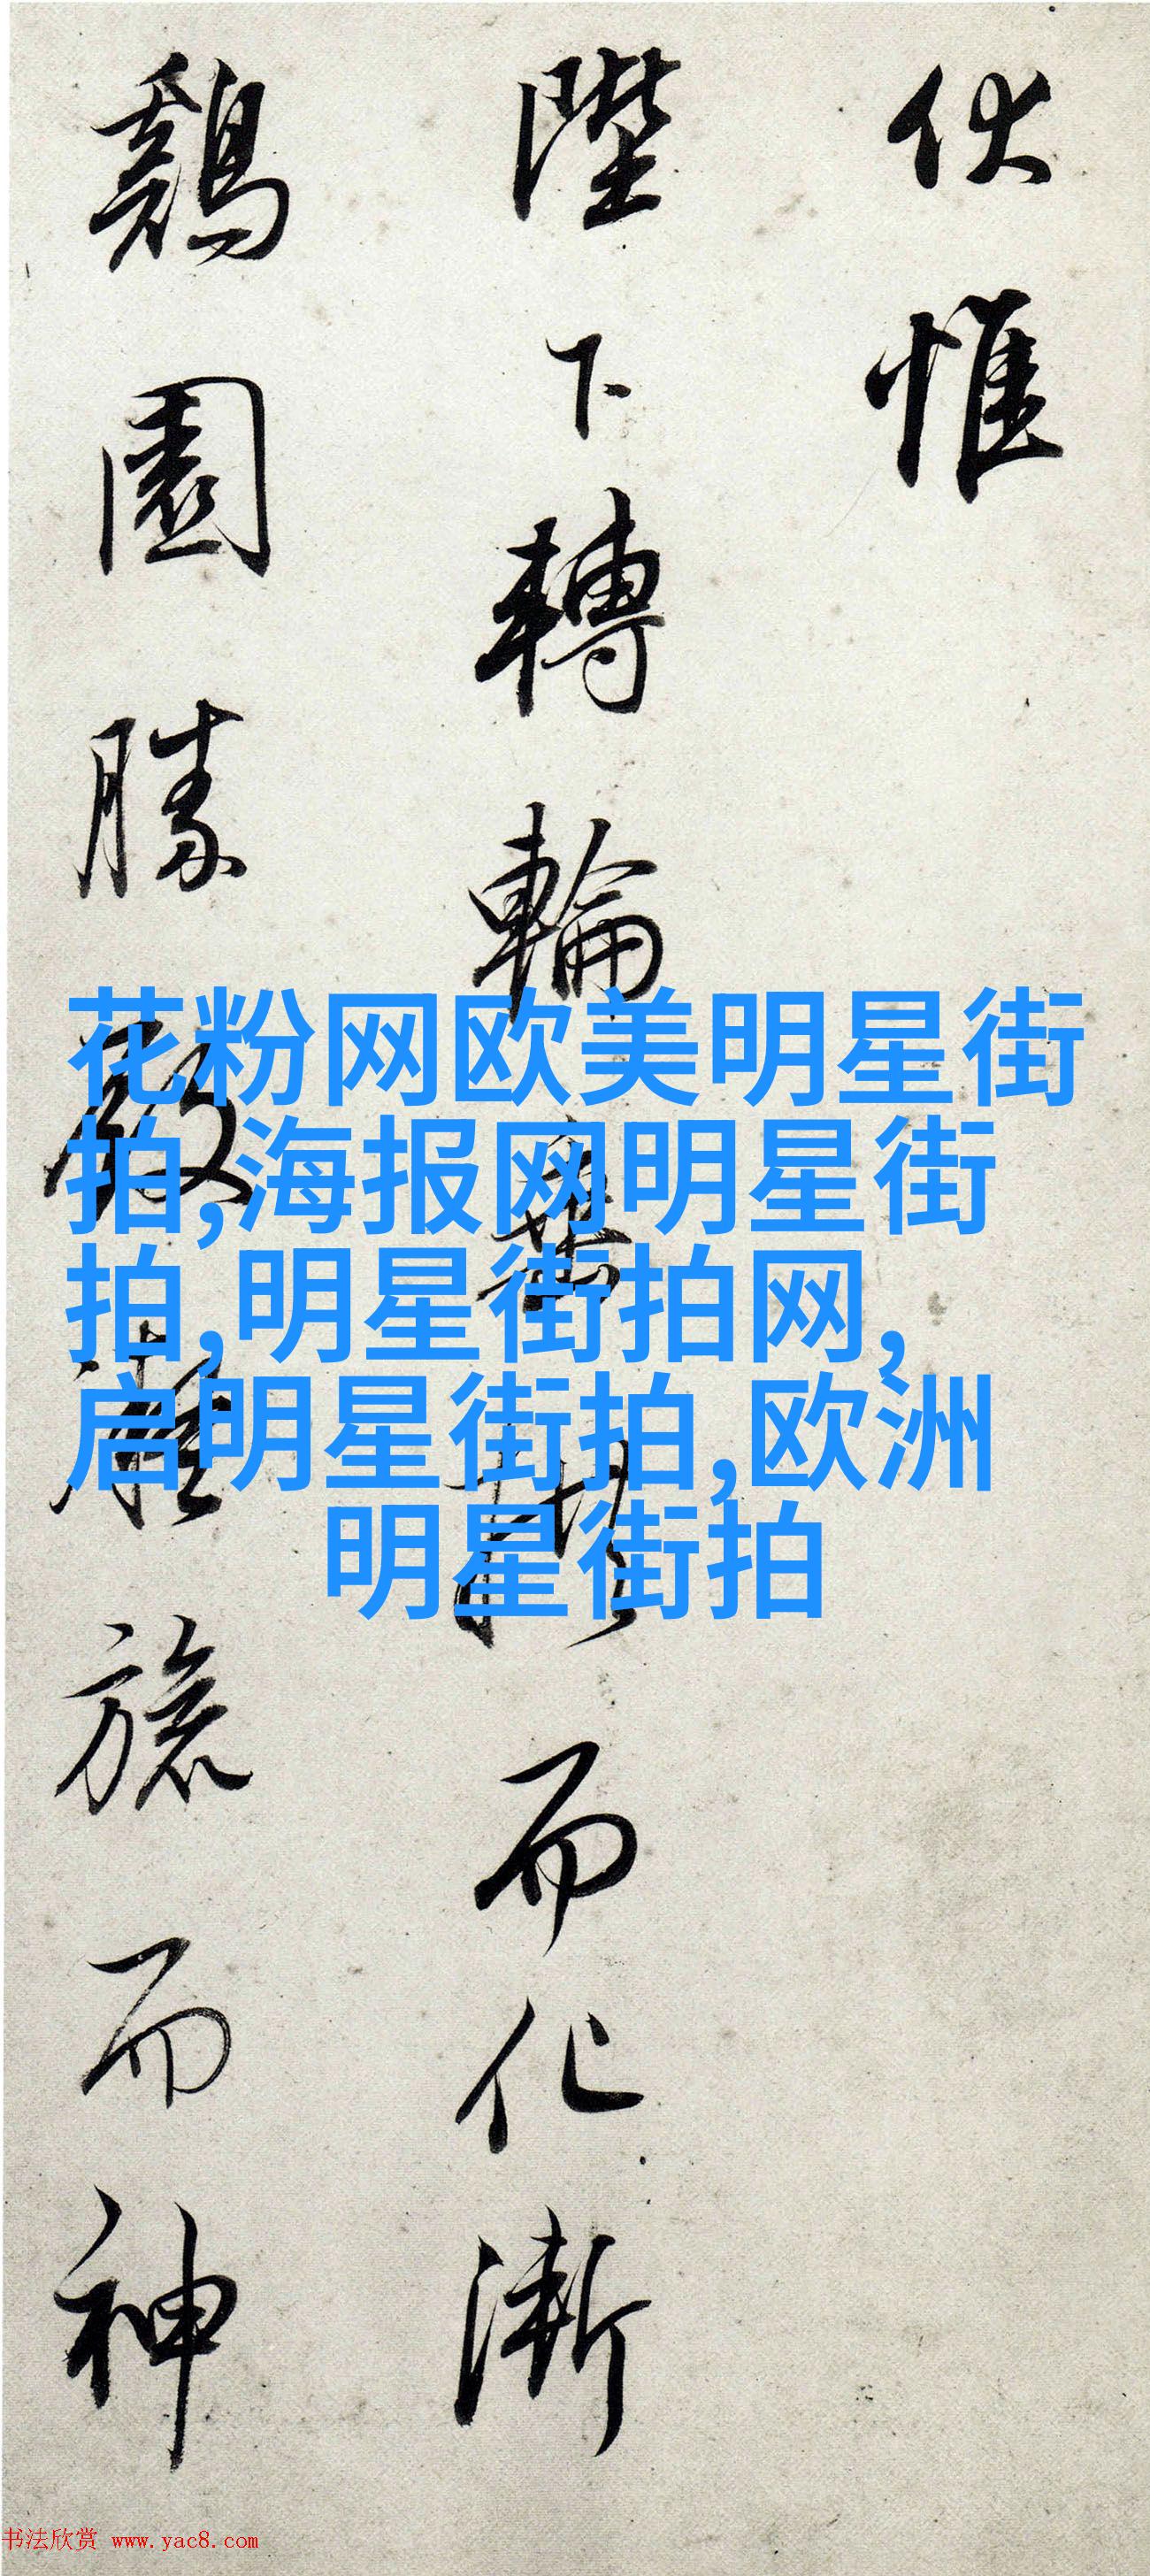 伏惟
陛下轉輪
而化漸
鷄園勝
旅而神
花粉网欧美明星街
拍,海报网明星街
拍,明星街拍网,
启明星街拍,欧洲
明星街拍
书法欣赏 www.yac8.com